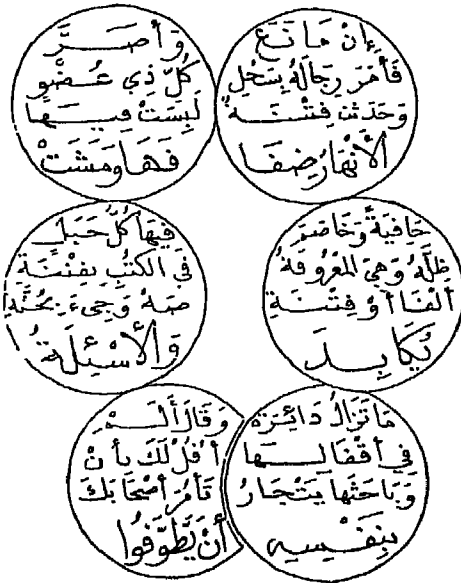 إِنْ مَانَعَ
فَأَمَرَ رِجَالَهُ بِسَحْلِ
وَحَدَثَتْ فِتْنَةٌ
الأَنْهَارُ ضِفَا
وَأَصَرَّ
كُلِّ ذِي عُضْوٍ
لَبِسَتْ فِيهَا
فَهَا وَمَشَتْ
حَافِيَةً وَخَاصَمَ
ظِلَّهُ وَهْيَ المَعْرُوفَةُ
أَلْفَنَا أَوْ فِتْنَةِ
يُكَابِدَ
فِيهَا كُلُّ حَبَلٍ
فِي الكُتُبِ بِفِتْنَةِ
صَهْ وَجِيءَ بِجُثَّةِ
وَالأَسْئِلَةُ
مَا تَزَالُ دَائِرَةً
فِي أَقْفَالِهَا
وَبَاحَثَهَا يَتَجَارُ
بِنَفْسِيهِ
وَقَالَ أَلَمْ
أَقُلْ لَكَ بِأَنْ
تَأْمُرَ أَصْحَابَكَ
أَنْ يَطَّوَّفُوا